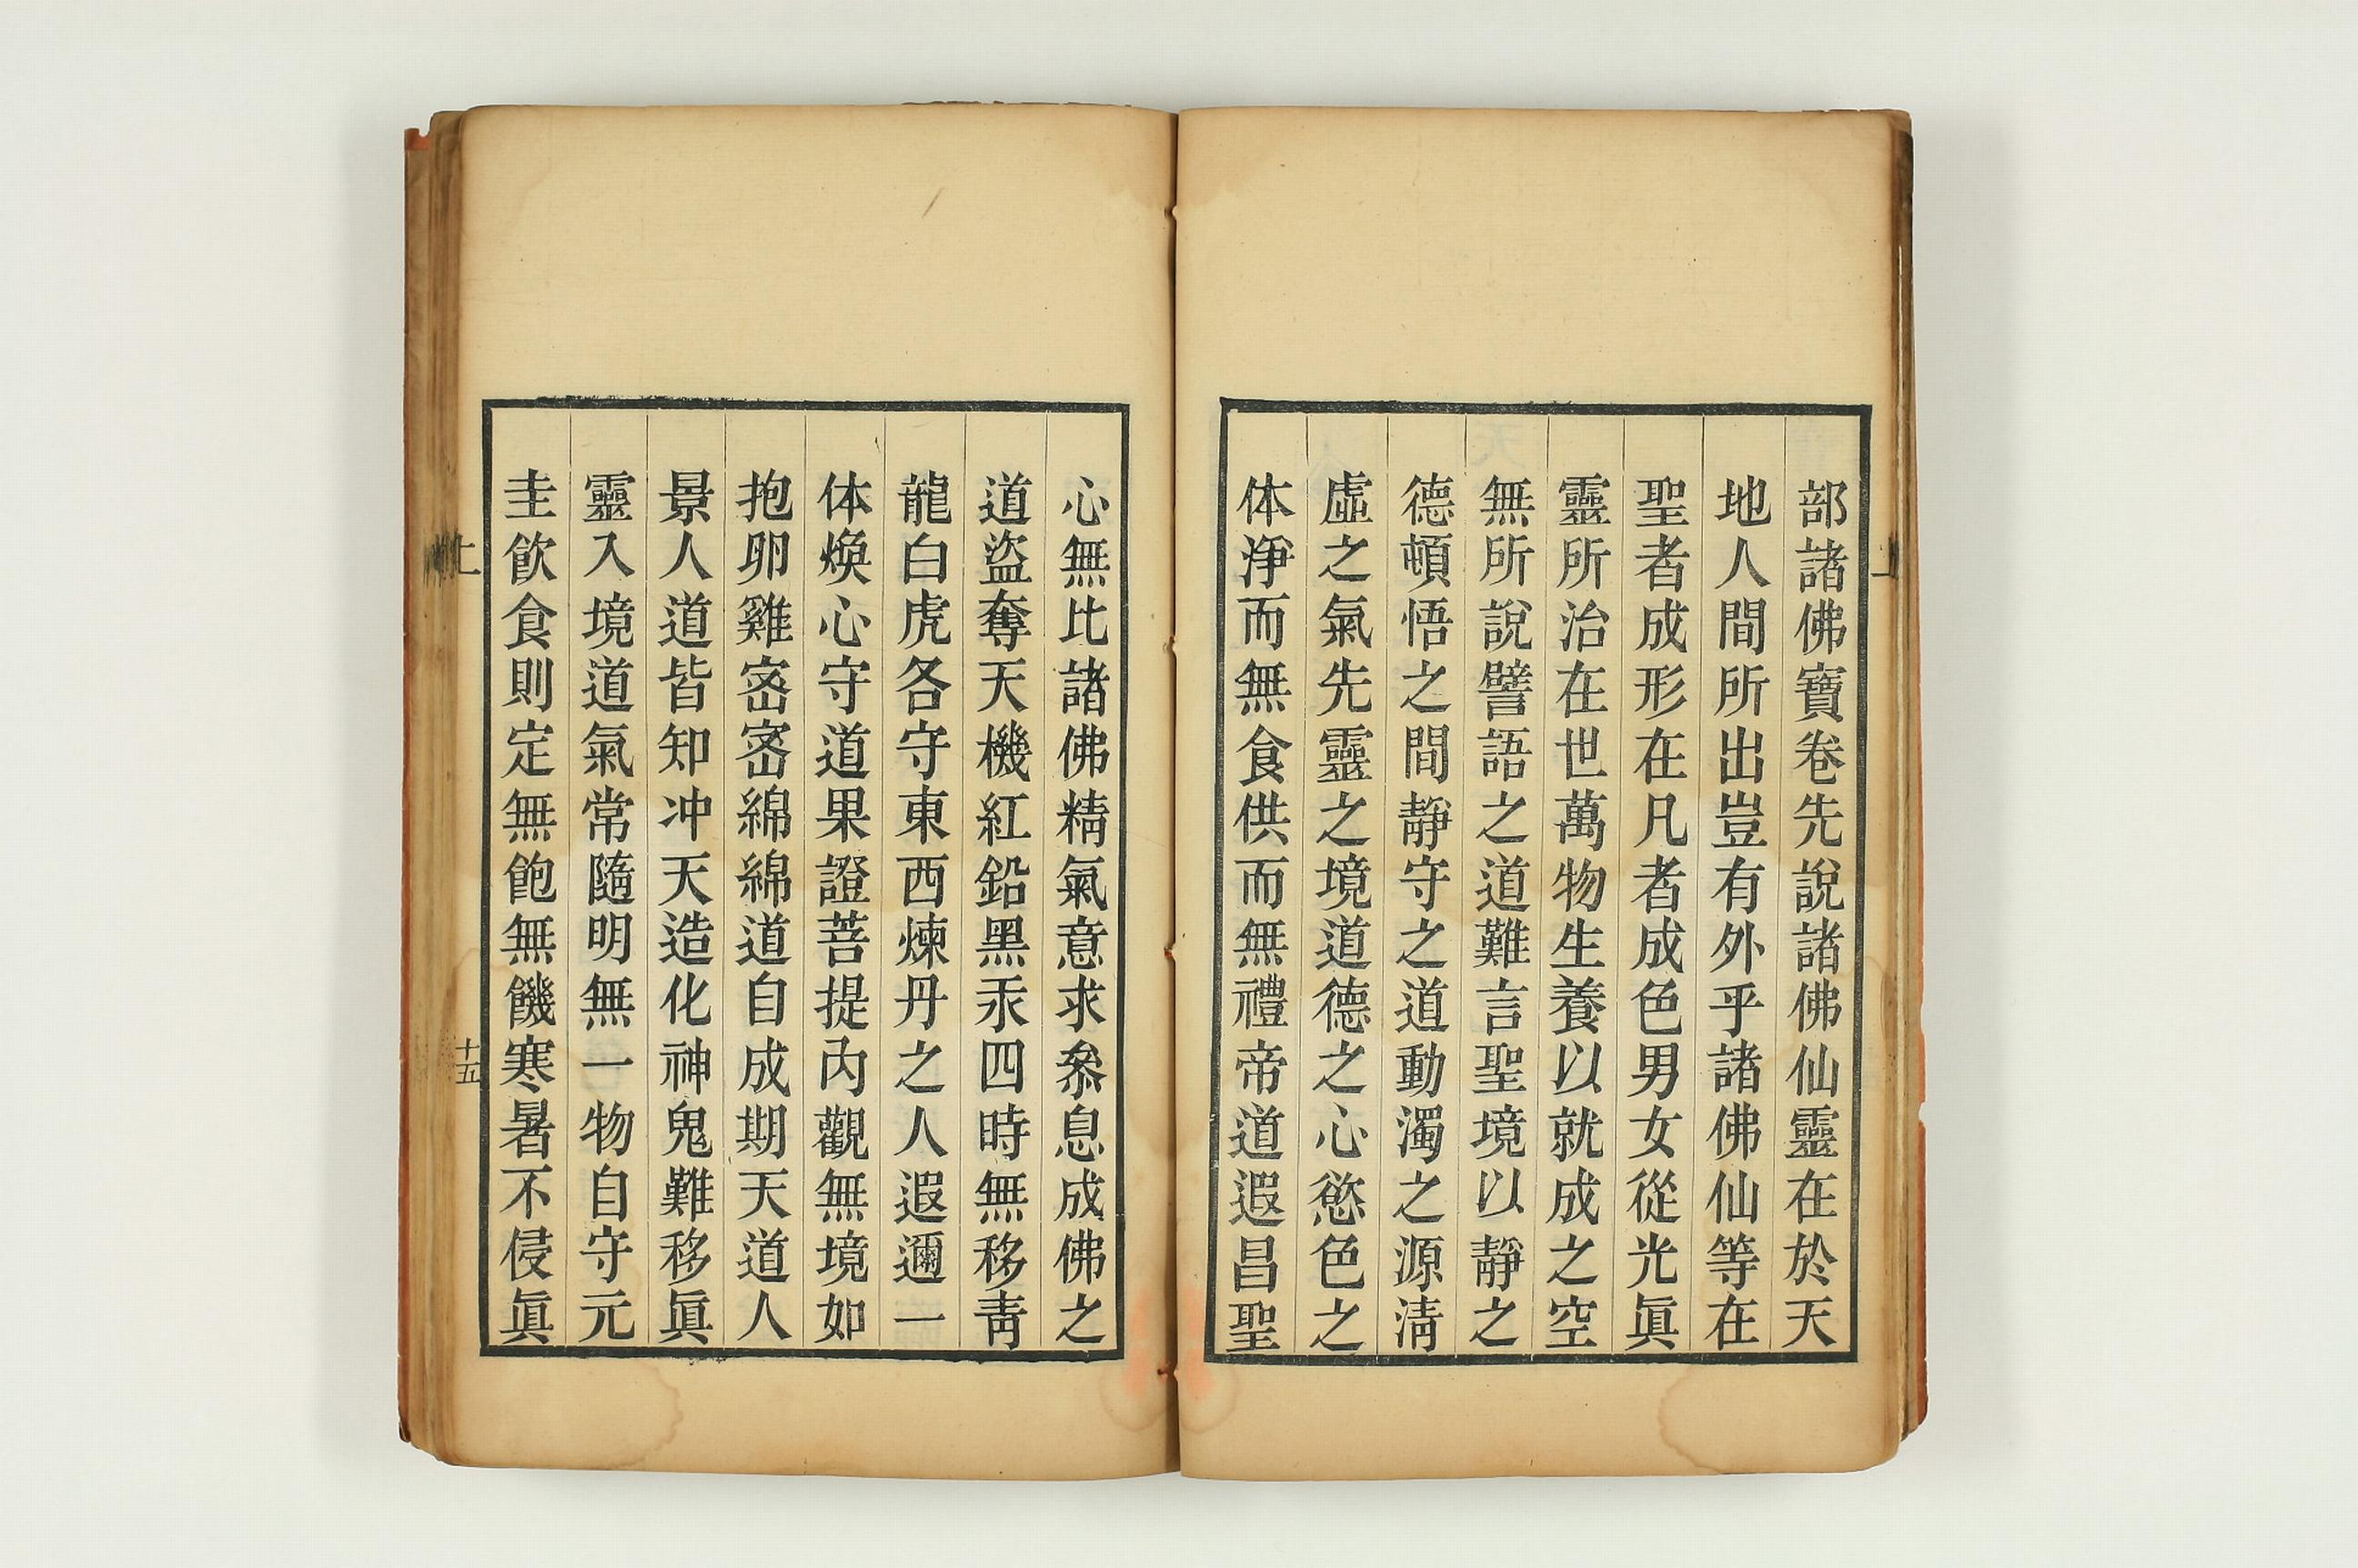 部諸佛寶卷先說諸佛仙靈在於天
地人間所出豈有外乎諸佛仙等在
聖者成形在凡者成色男女從光眞
靈所治在世萬物生養以就成之空
無所說譬語之道難言聖境以靜之
德頓悟之間靜守之道動濁之源淸
虛之氣先靈之境道德之心慾色之
体淨而無食供而無禮帝道遐昌聖
心無比諸佛精氣意求叅息成佛之
道盜奪天機紅鉛黑汞四時無移靑
龍白虎各守東西煉丹之人遐邇一
体煥心守道果證菩提內觀無境如
抱卵雞宻宻綿綿道自成期天道人
景人道皆知冲天造化神鬼難移眞
靈入境道氣常隨明無一物自守元
圭飮食則定無飽無饑寒暑不侵眞
上
十五